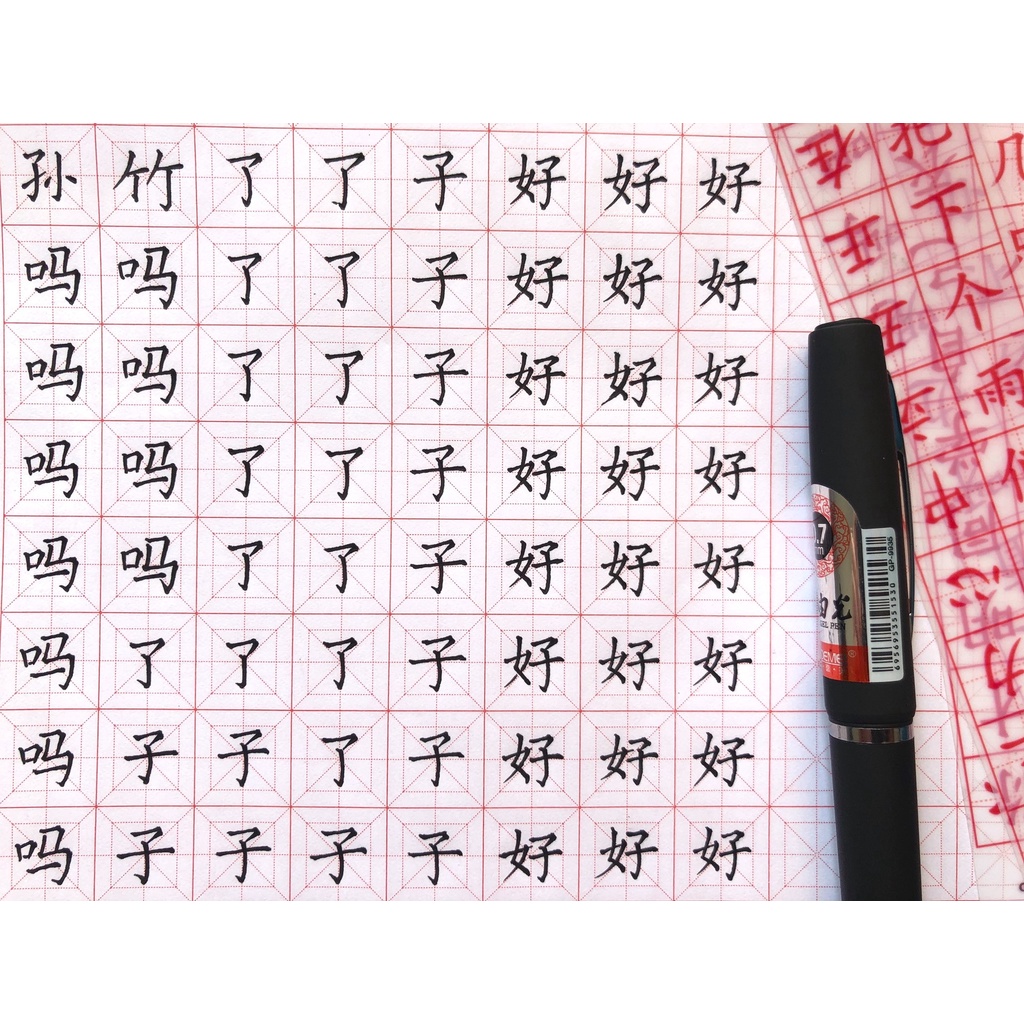 孙 竹 了 了 子 好 好 好
吗 吗 了 了 子 好 好 好
吗 吗 了 了 子 好 好 好
吗 吗 了 了 子 好 好 好
吗 吗 了 了 子 好 好 好
吗 了 了 了 子 好 好 好
吗 子 子 了 子 好 好 好
吗 子 子 子 子 好 好 好
GP-9936
6956953551530
在
把
几
班
下
个
雨
中